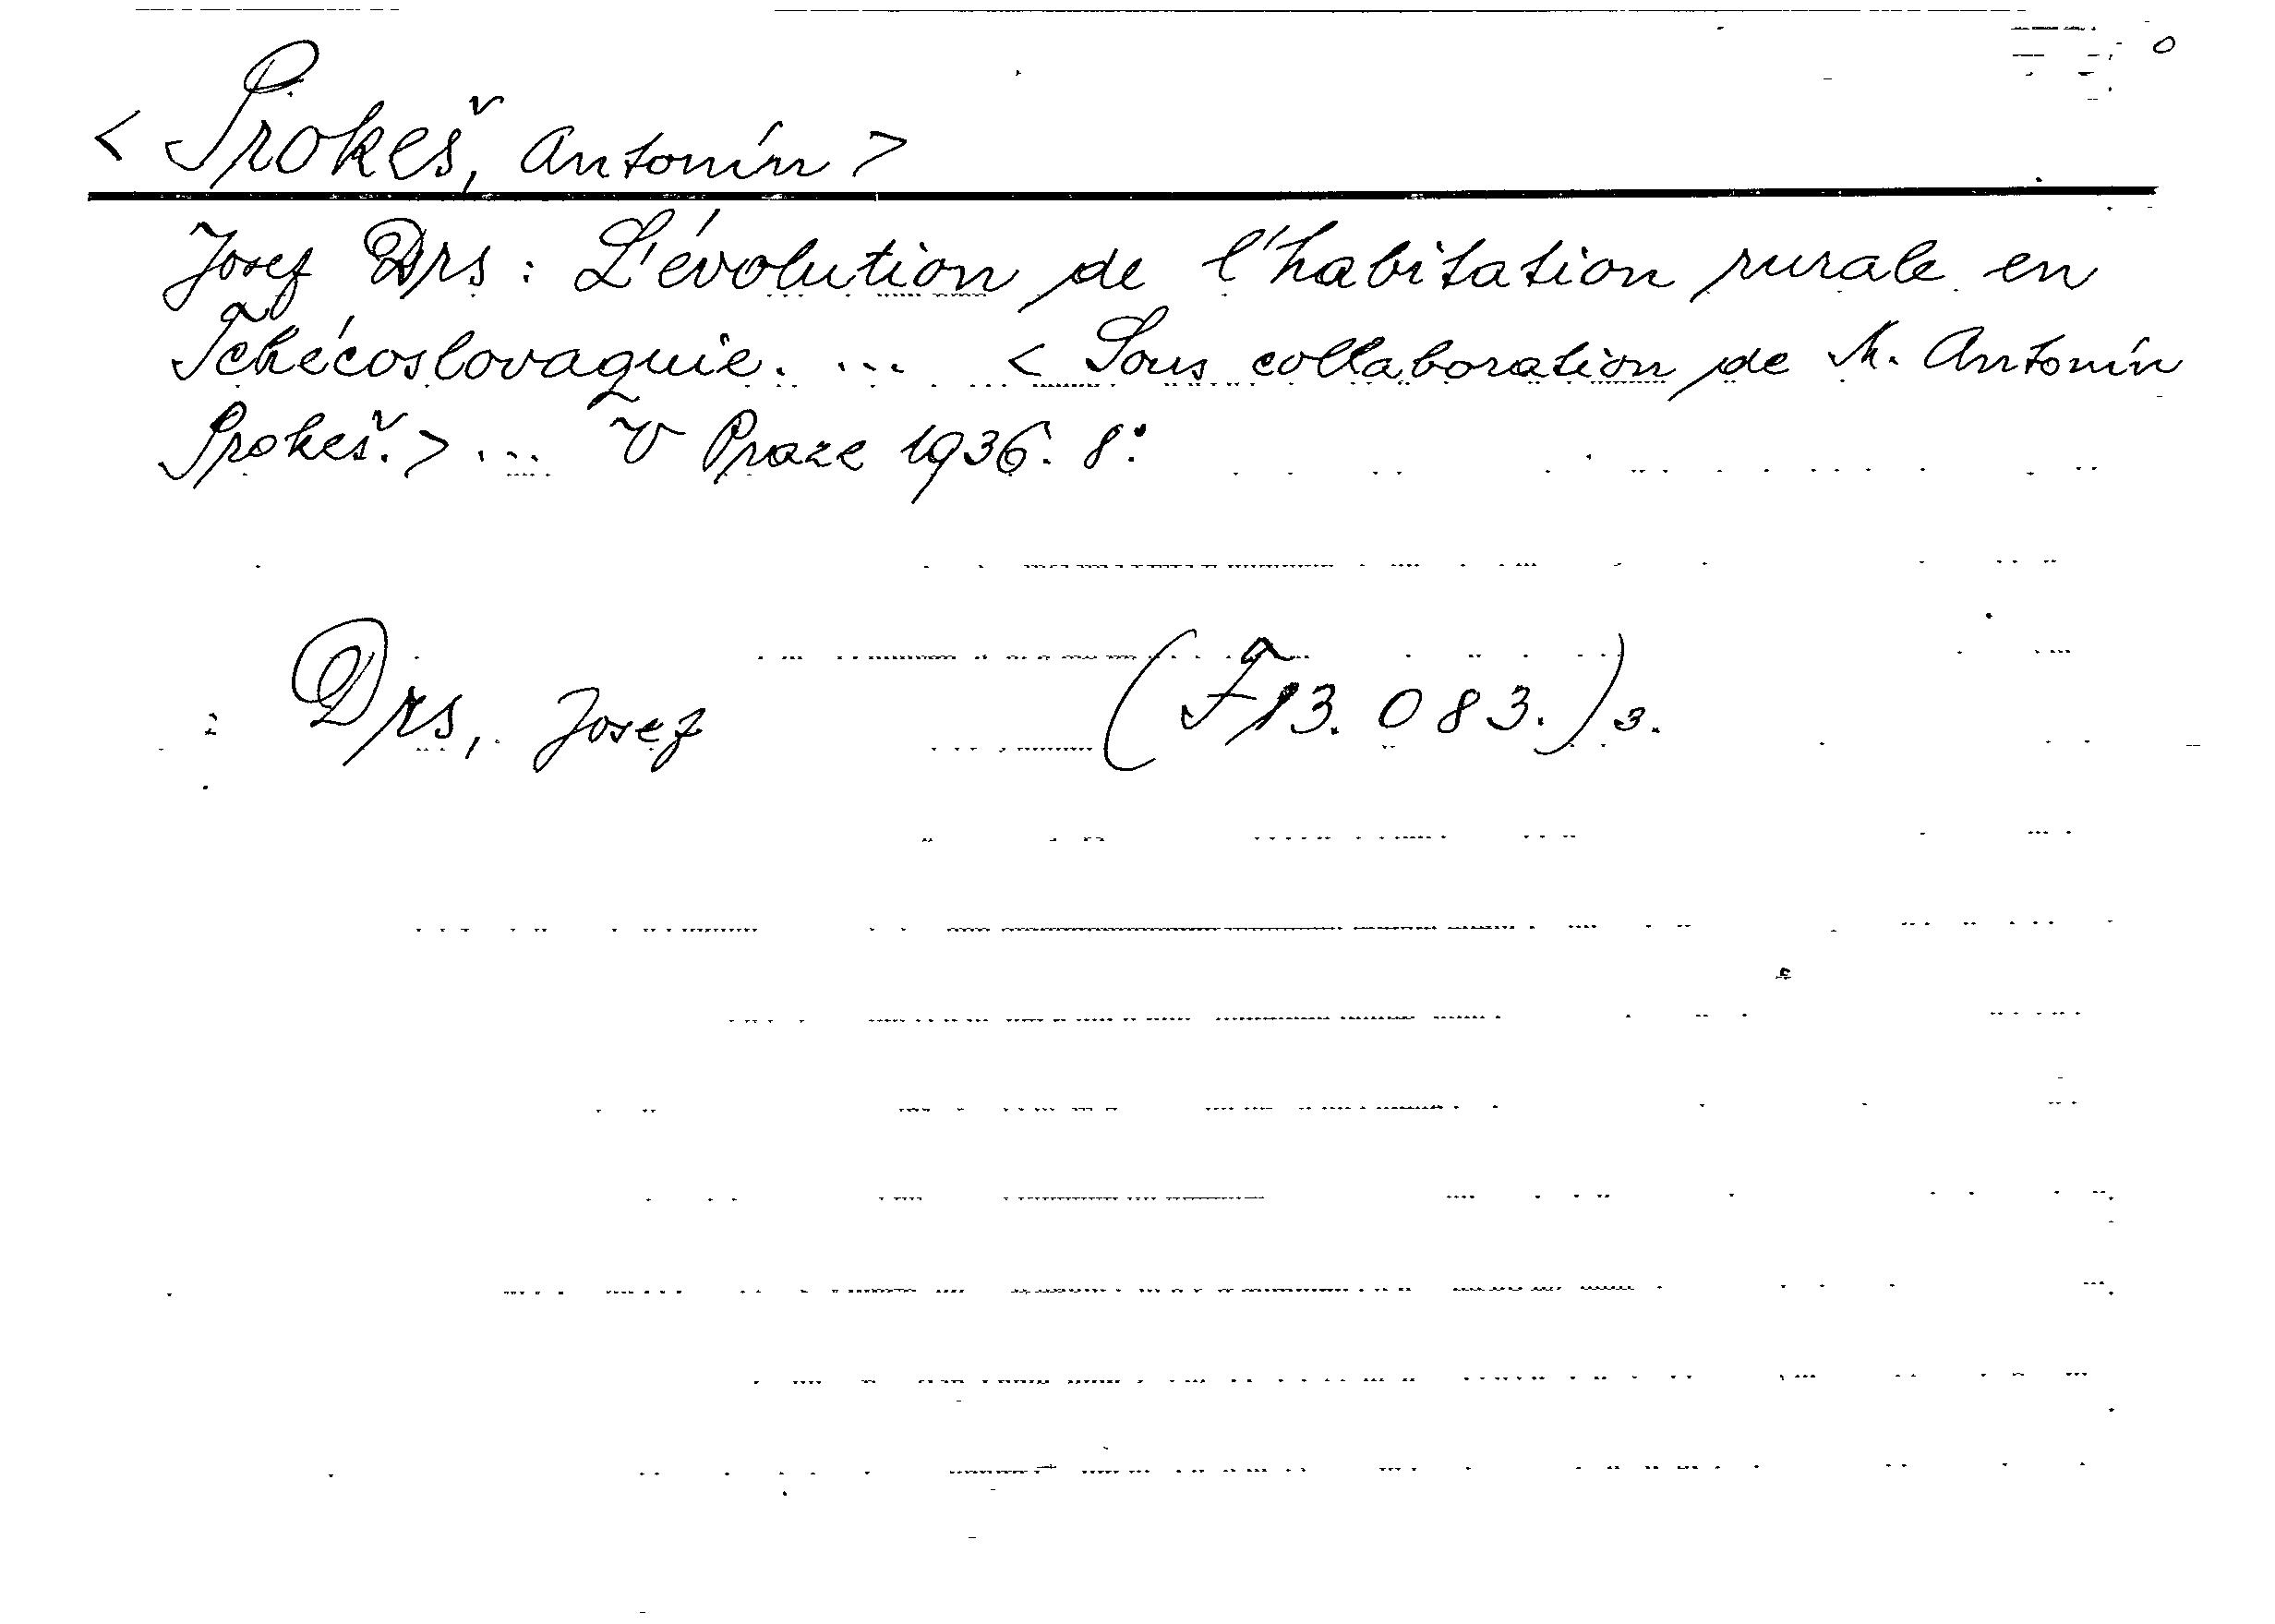 < Prokeš, Antonín >
Josef Drs : L'évolution de l'habitation rurale en
Tchécoslovaquie. ... < Sous collaboration de M. Antonín
Prokeš. > ... V Praze 1936. 8°.
Drs, Josef (F 13.083.) 3.